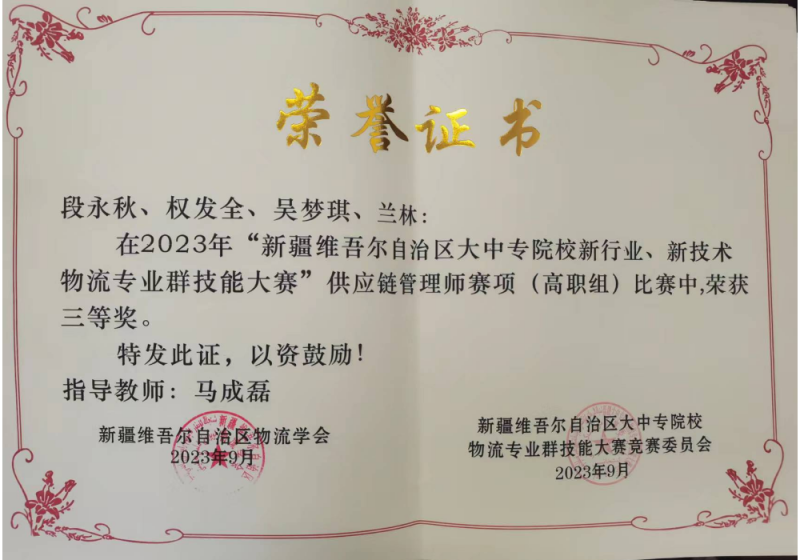 荣誉证书
段永秋、权发全、吴梦琪、兰林：
在2023年“新疆维吾尔自治区大中专院校新行业、新技术
物流专业群技能大赛”供应链管理师赛项（高职组）比赛中,荣获
三等奖。
特发此证，以资鼓励！
指导教师：马成磊
新疆维吾尔自治区物流学会
2023年9月
新疆维吾尔自治区大中专院校
物流专业群技能大赛竞赛委员会
2023年9月